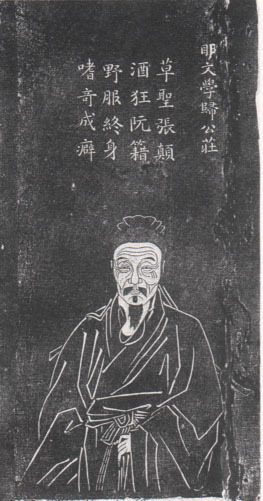 明文學歸公莊
草聖張顛
酒狂阮籍
野服終身
嗜奇成癖